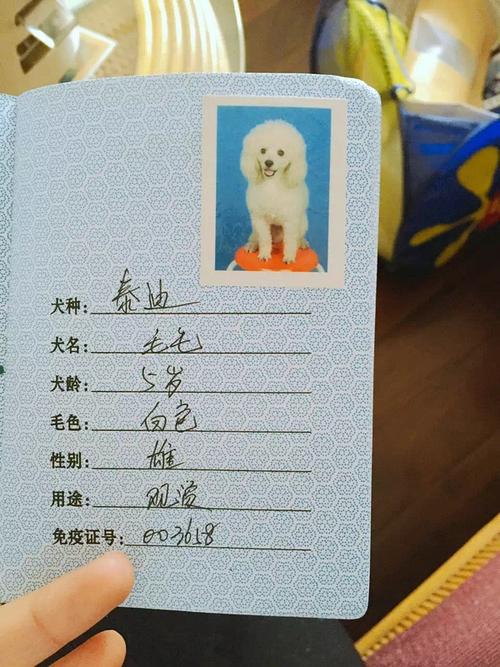 犬种:泰迪
犬名:毛毛
犬龄:5岁
毛色:白色
性别:雄
用途:观赏
免疫证号:003618